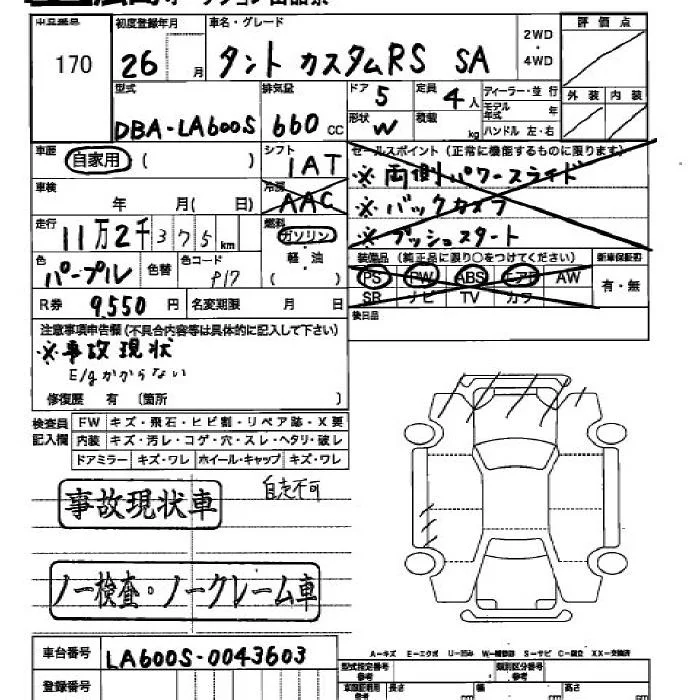 出品番号 初度登録年月 車名・グレード 2WD ・ 4WD 評価点
170 26 月 タント カスタムRS SA
型式 排気量 ドア 5 定員 4人 ディーラー・並行 外装 内装
モデル年式 年
DBA-LA600S 660 CC 形状 W 積載 kg ハンドル 左・右
車歴 自家用 ( ) シフト 1AT セールスポイント (正常に機能するものに限ります)
※両側パワースライド
車検 年 月( 日) 冷房 AAC ※バックカメラ
走行 11万2千375km 燃料 ガソリン ※プッシュスタート
軽・油
( )
色 パープル 色替 色コード P17 装備品 (純正品に限り○をつけてください) 新車保証書
PS PW ABS エアB AW 有・無
SR ナビ TV カワ
R券 9,550円 名変期限 月 日 後日品
注意事項申告欄 (不具合内容等は具体的に記入して下さい)
※事故現状
E/gかからない
修復歴 有 (箇所 )
検査員記入欄 FW キズ・飛石・ヒビ割・リペア跡・X要
内装 キズ・汚レ・コゲ・穴・スレ・ヘタリ・破レ
ドアミラー キズ・ワレ ホイール・キャップ キズ・ワレ
自走不可
事故現状車
ノー検査・ノークレーム車
車台番号 LA600S-0043603
A－キズ E－エクボ U－凹み W－補修跡 S－サビ C－腐食 XX－交換済
登録番号 型式指定番号 参考 類別区分番号 参考
長さ cm 幅 cm 高さ cm